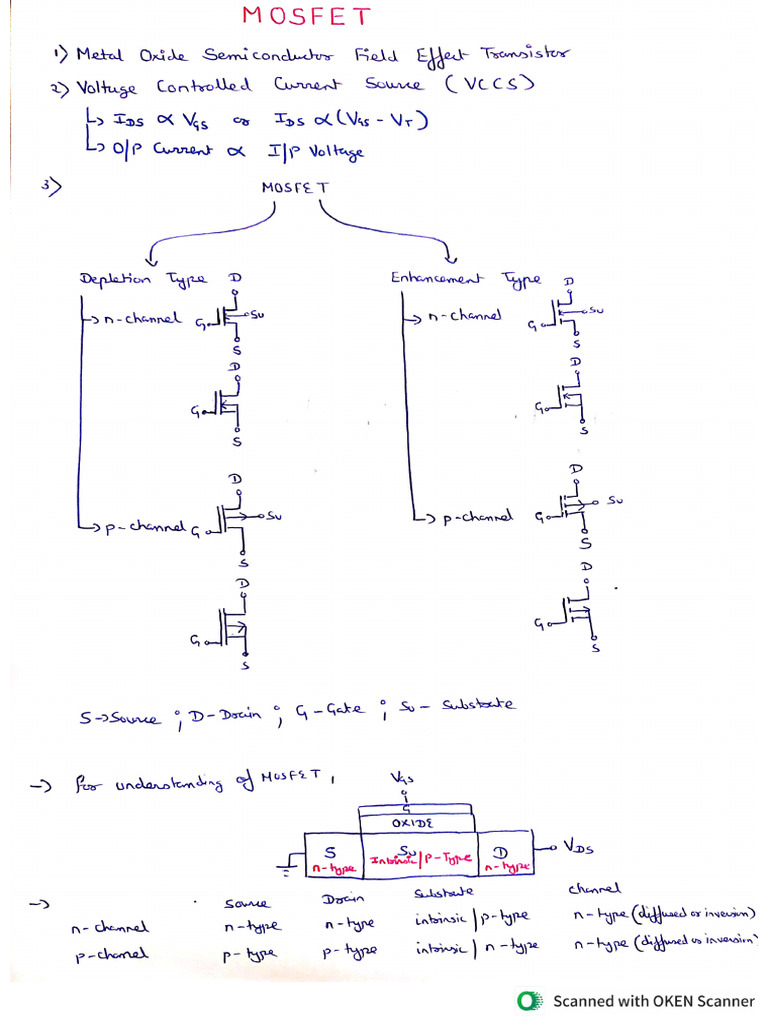 MOSFET
1) Metal Oxide Semiconductor Field Effect Transistor
2) Voltage Controlled Current Source (VCCS)
↳ IDS ∝ VGS or IDS ∝ (VGS - VT)
↳ O/P Current ∝ I/P Voltage
3)
MOSFET
Depletion Type
→ n-channel
D
G
Su
S
D
G
S
→ p-channel
D
G
Su
S
D
G
S
Enhancement Type
→ n-channel
D
G
Su
S
D
G
S
→ p-channel
D
G
Su
S
D
G
S
S→Source ; D-Drain ; G-Gate ; Su - Substrate
→ for understanding of MOSFET,
VGS
G
OXIDE
S
n-type
Su
Intrinsic/P-Type
D
n-type
VDS
→ Source Drain Substrate channel
n-channel n-type n-type intrinsic / p-type n-type (diffused or inversion)
p-channel p-type p-type intrinsic / n-type n-type (diffused or inversion)
Scanned with OKEN Scanner